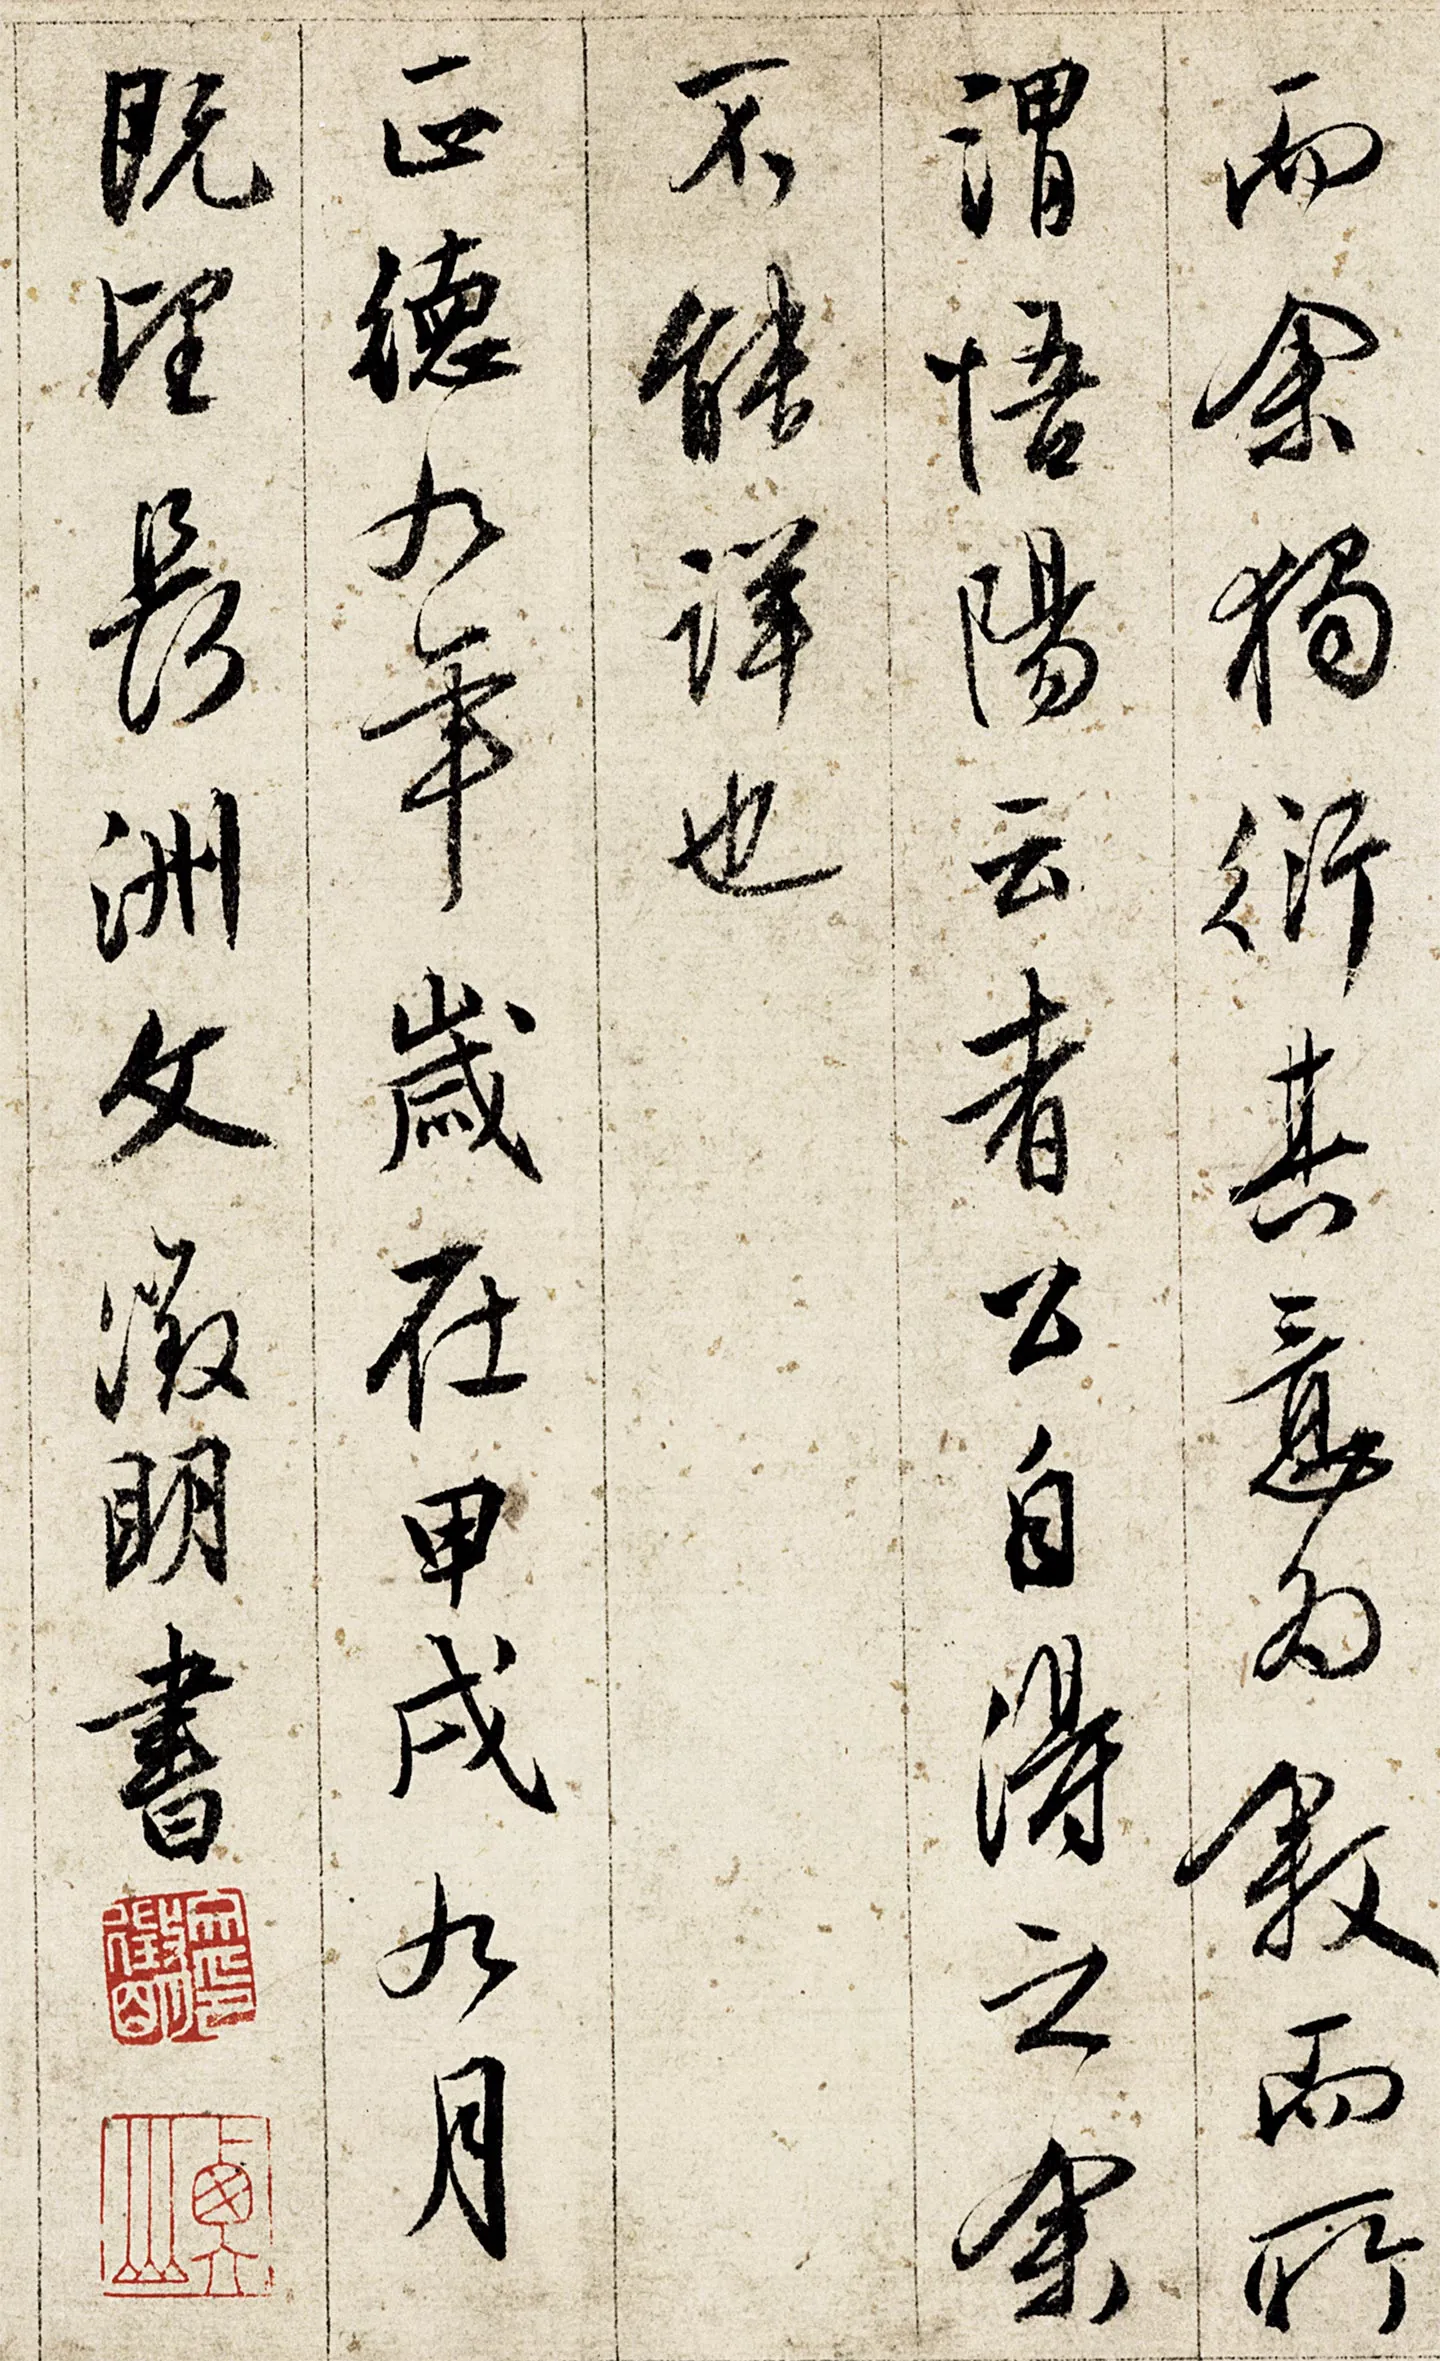 而余獨衍其意為敘而所
謂悟陽云者公自得之余
不能詳也
正德九年歲在甲戌九月
既望長洲文徵明書
文徵明印